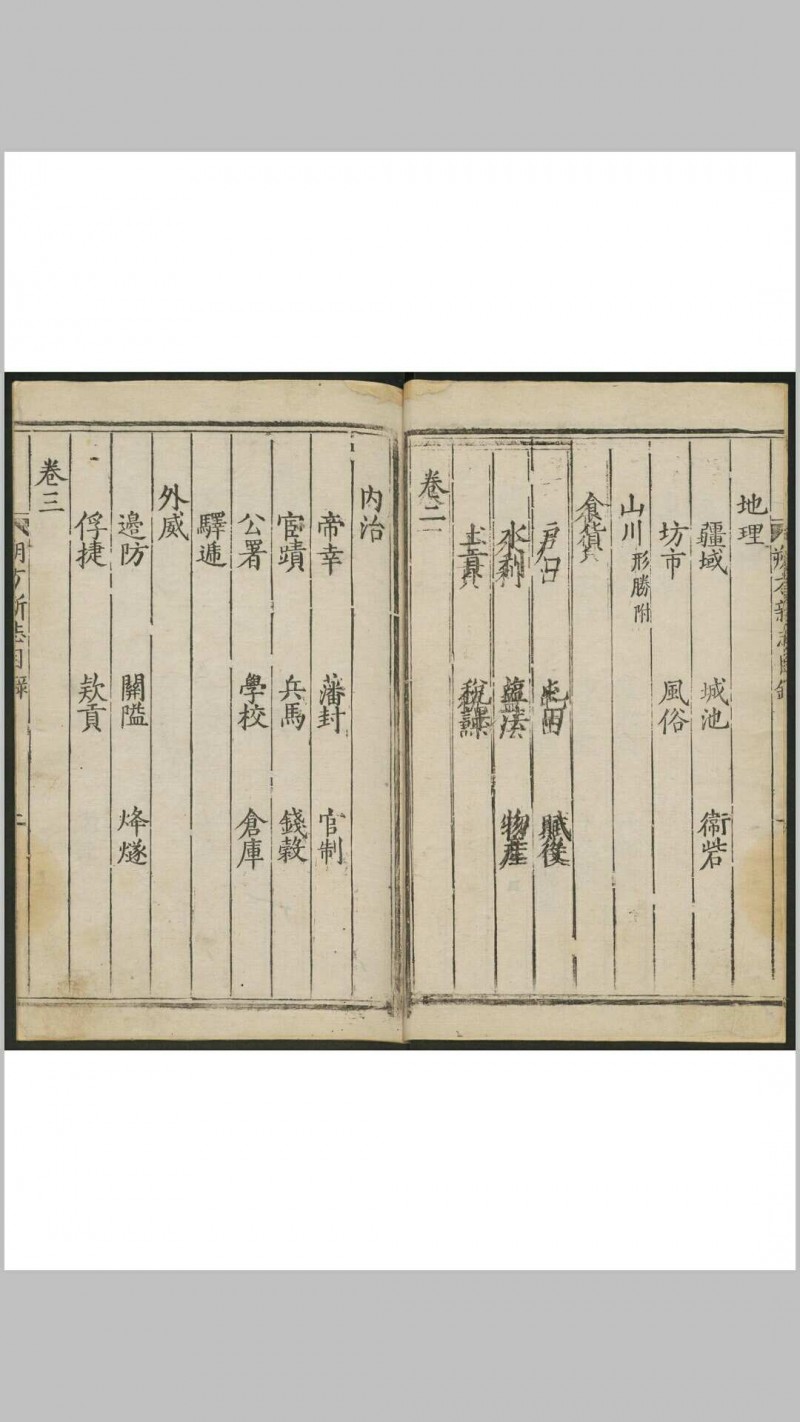 地理
疆域 城池 衞砦
坊市 風俗
山川 形勝附
食貨
戶口 屯田 賦役
水利 鹽法 物產
土貢 稅課
卷二
內治
帝幸 藩封 官制
宦蹟 兵馬 錢穀
公署 學校 倉庫
驛遞
外威
邉防 關隘 烽燧
俘捷 欵貢
卷三
朔方新志目錄